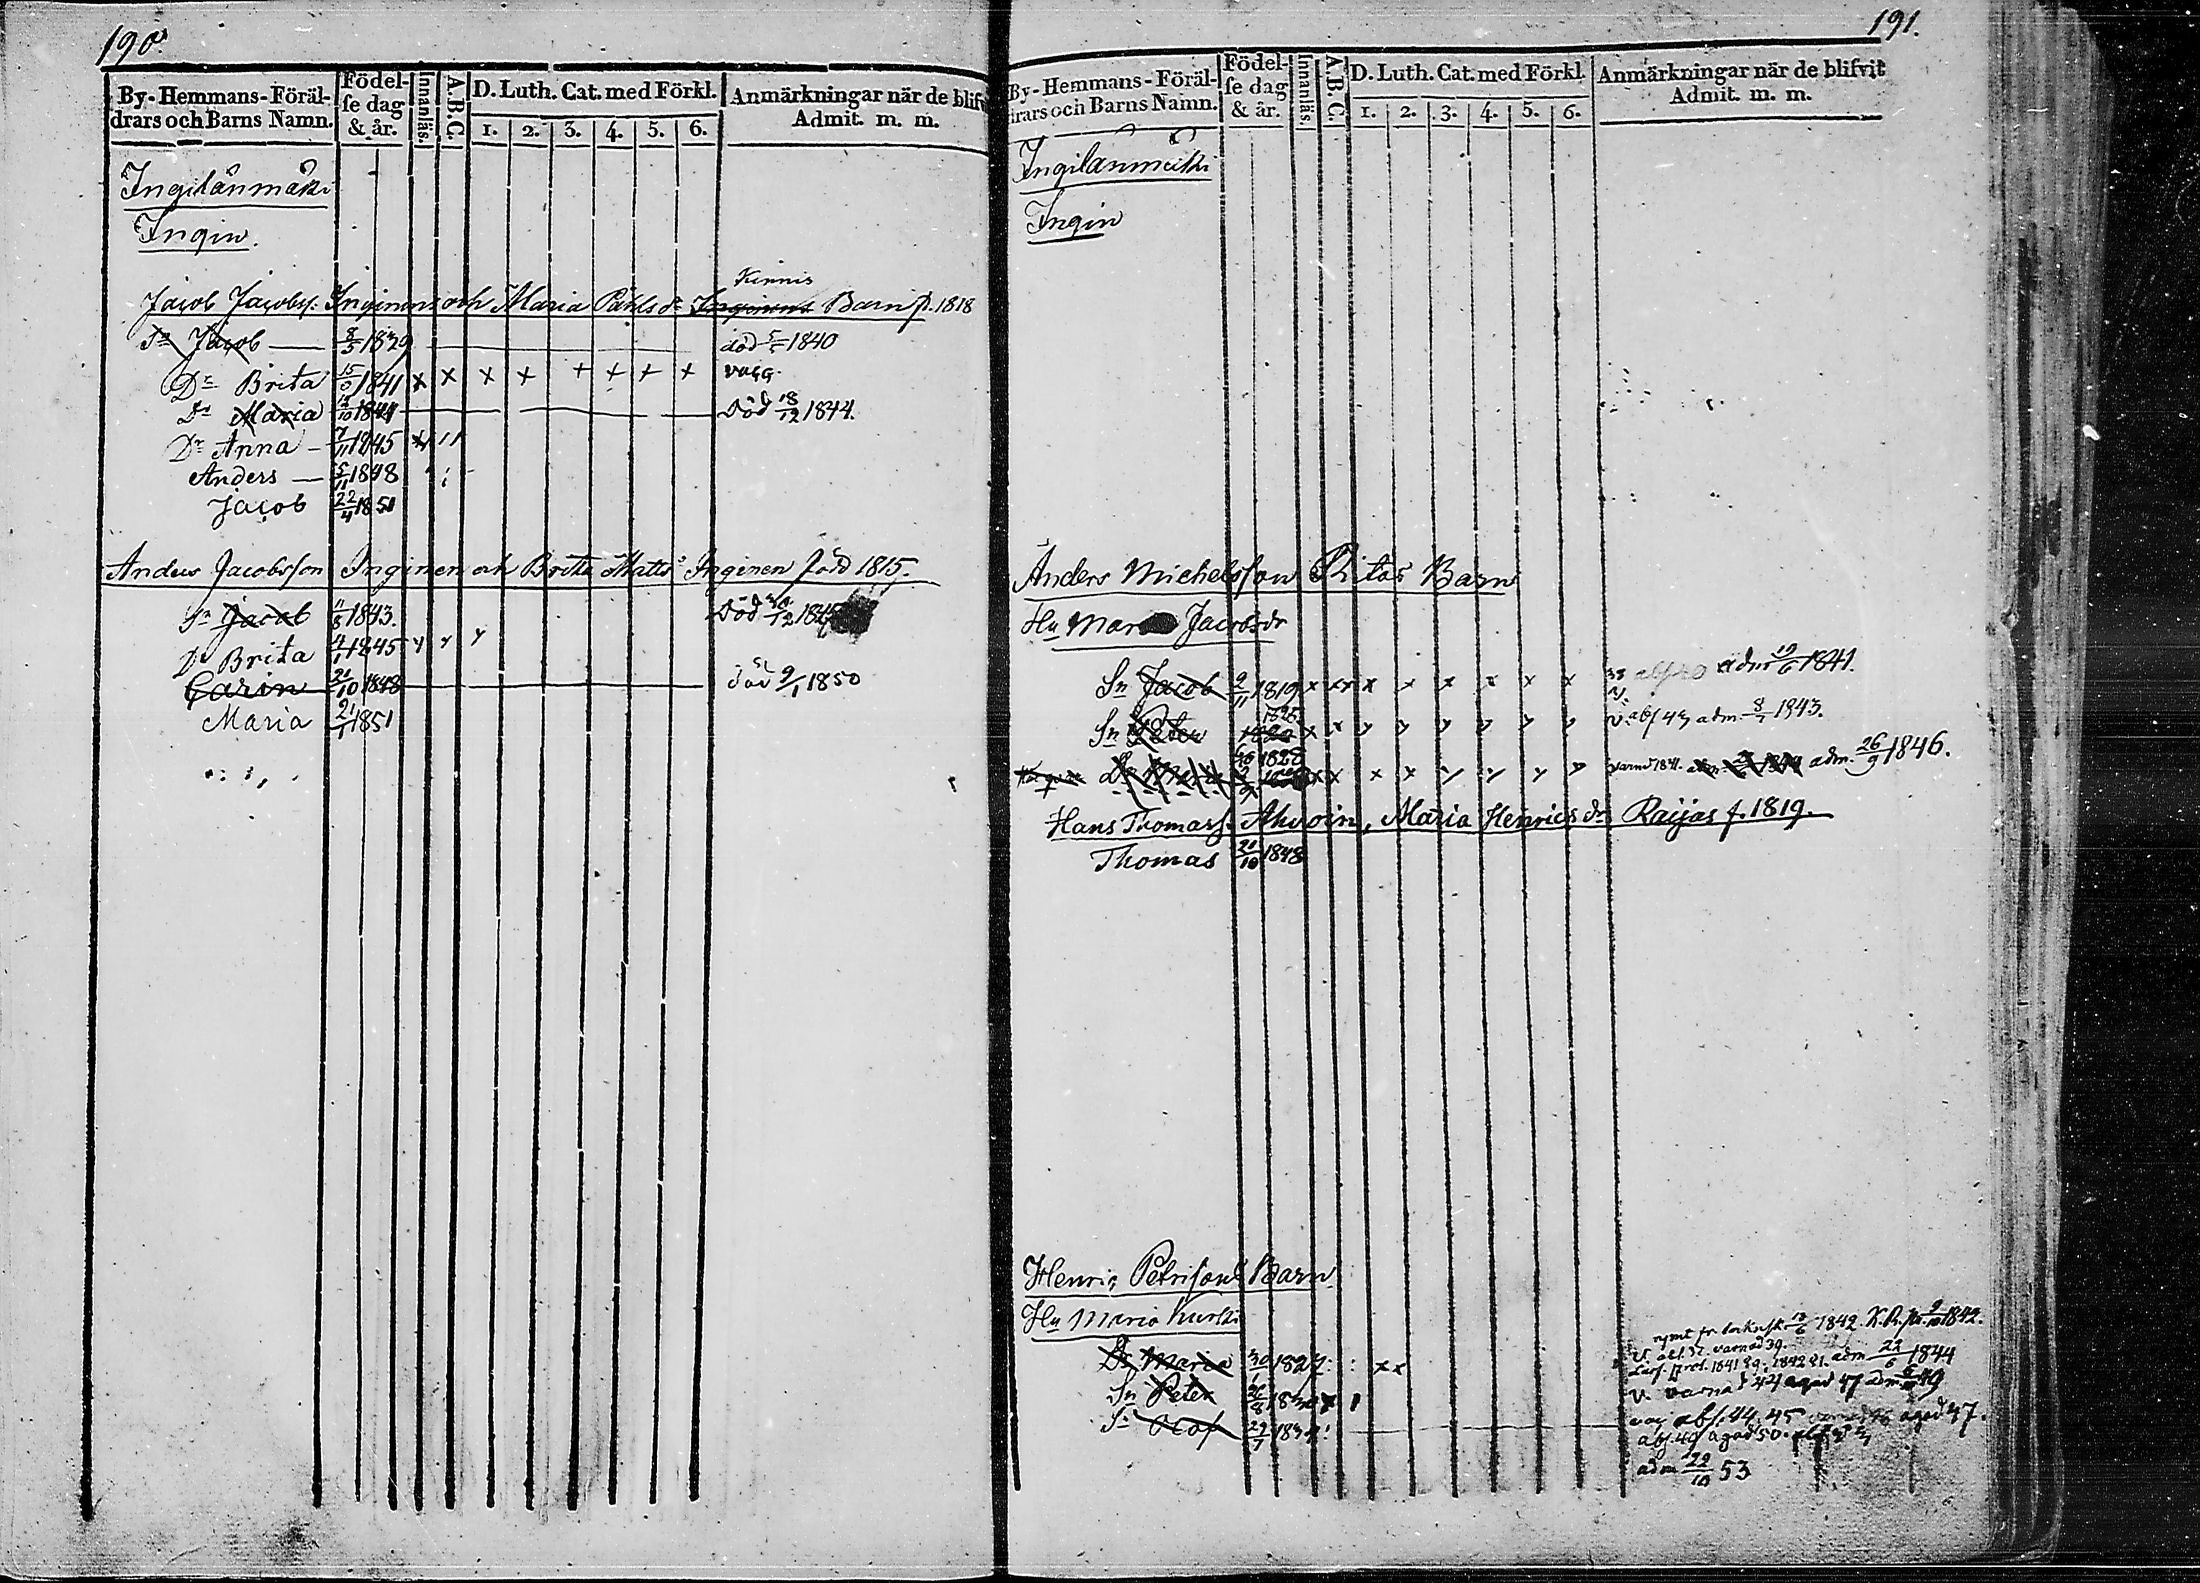 190.
By-Hemmans-Föräl-
drars och Barns Namn.
Födel-
se dag
& år.
Innanläs.
A.B.C.
D. Luth. Cat. med Förkl.
1. 2. 3. 4. 5. 6.
Anmärkningar när de blifv
Admit. m. m.
Ingilänmäki
Ingin.
Kinnis
Jacob Jacobss. Inginen och Maria Påhls dr Inginens Barn f. 1818
Sn Jacob 8/3 1839 död 5/5 1840
Dr Brita 1841 x x x x + + + x vacc.
Dr Maria 1844 Död 18/12 1844.
Dr Anna 7/11 1845
Anders 5/11 1848
Jacob 22/4 1851
Anders Jacobsson Inginen och Brita Matsdr Inginen född 1815.
Sn Jacob 1843. Död 30/12 184
Dr Brita 4/1 1845 y y y
Carin 21/10 1848 död 9/1 1850
Maria 21/1 1851
191.
By-Hemmans-Föräl-
drars och Barns Namn.
Födel-
se dag
& år.
Innanläs.
A.B.C.
D. Luth. Cat. med Förkl.
1. 2. 3. 4. 5. 6.
Anmärkningar när de blifvit
Admit. m. m.
Ingilänmäki
Ingin
Anders Michelsson Ritas Barn
Hu Mar Jacobsdr
Sn Jacob 9/11 1819 x x x x x x x x x adm 19/6 1841.
1825
Sn Peter 1820 x x y y y y y y v. abs 43 adm. 8/7 1843.
1828
Dr x x x x y y y y varnd 1841. adm. 26/9 1846.
Hans Thomass. Ahvoin, Maria Henrics dr Raijas f. 1819.
Thomas 21/10 1848
Henric Petrisons Barn
Hu Maria Kurki
1842. K.B. 1842.
varnad 39.
Dr Maria 1827 x x 1841 1842 adm 22/6 1844
Sn Peter 26/8 1830 v. varnad 44 agad 47 adm 49
Sn Olof 29/7 183 abs. 44. 45 agad 47.
abs. 49 agad 50.
adm 22/10 53